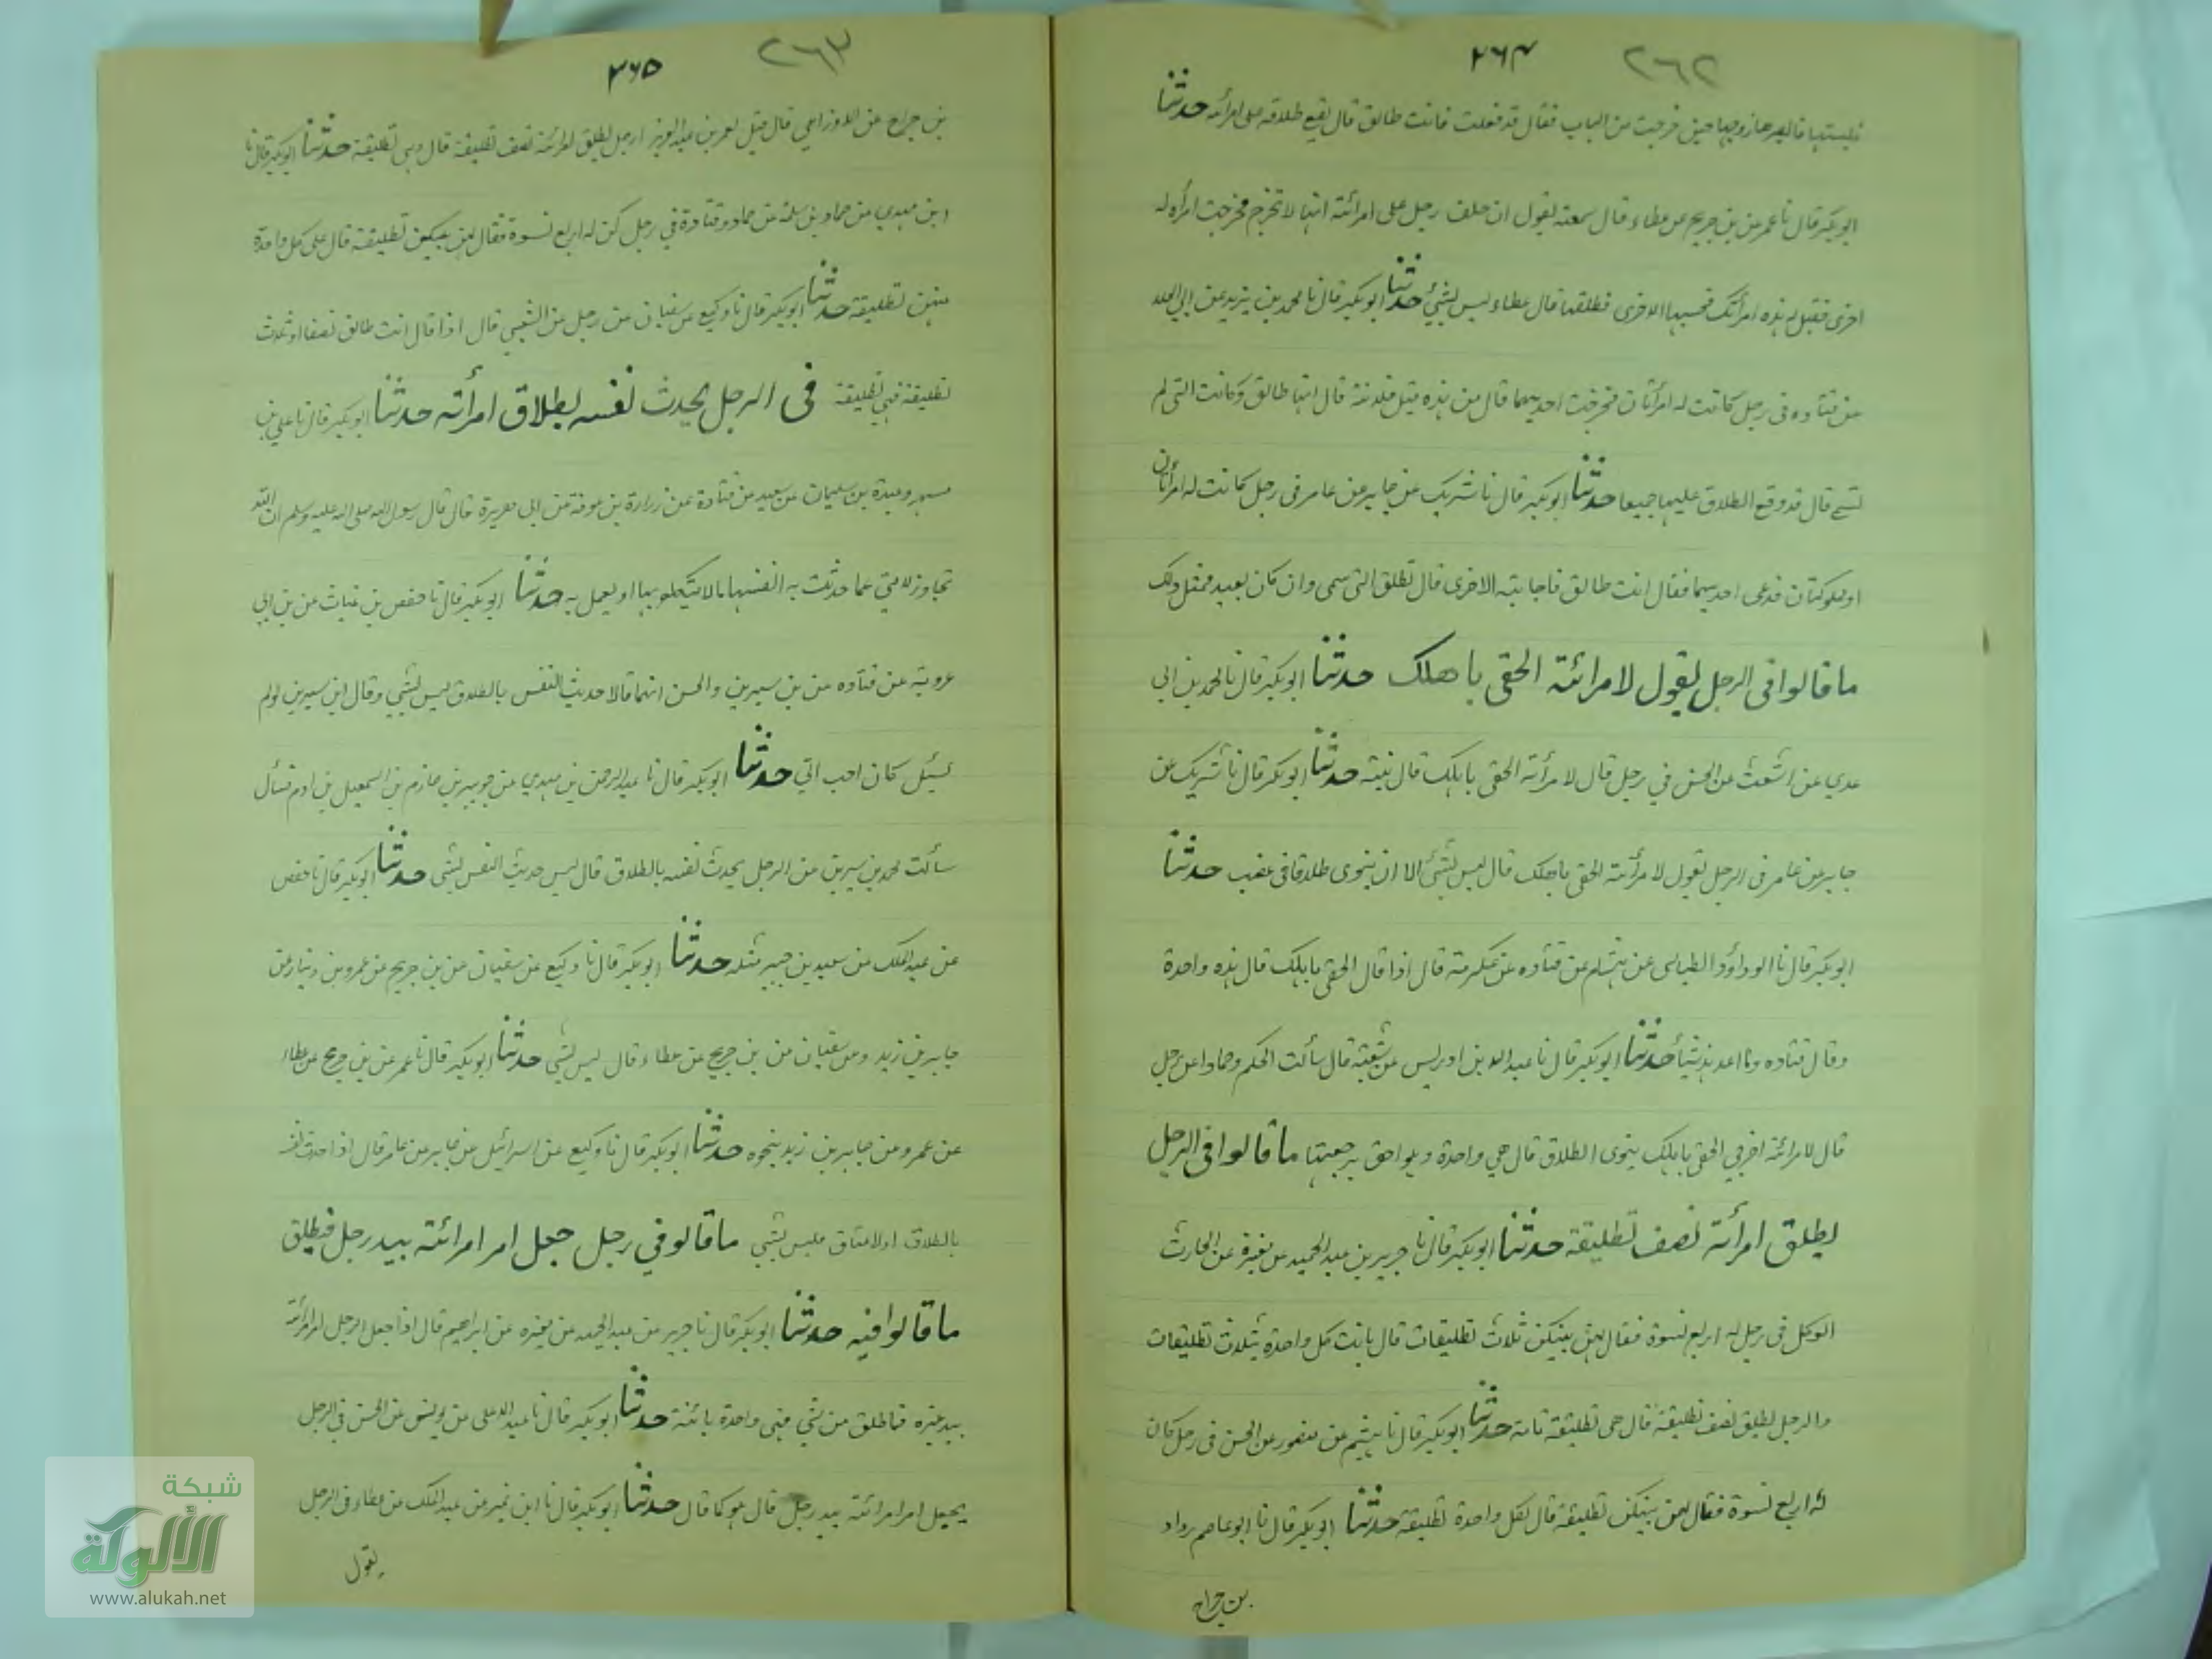 ٢٦٢ ٢٦٤
فابصرها زوجها حين خرجت من الباب فقال قد فعلت فانت طالق قال يقع طلاقه على امرأته حدثنا
ابو بكر قال نا عمر عن بن جريج عن عطاء قال سمعته يقول ان حلف رجل على امرائته انها لا تخرج فخرجت امراه له
اخرى فقيل له هذه امرأتك فحسبها الاخرى فطلقها قال عطاء ليس بشيئ حدثنا ابو بكر قال نا محمد بن يزيد عن ابي العلا
عن قتاده في رجل كانت له امرأتان فخرجت احديهما قال من هذه قيل فلانة قال انها طالق وكانت التي لم
تسم قال قد وقع الطلاق عليهما جميعا حدثنا ابو بكر قال نا شريك عن جابر عن عامر في رجل كانت له امرأتان
او مملوكتان فدعى احديهما فقال انت طالق فاجابته الاخرى قال تطلق التي سمى وان كان بعيد فمثل ذلك
ما قالوا في الرجل يقول لامرائته الحقى باهلك حدثنا ابو بكر قال نا محمد بن ابي
عدي عن اشعث عن الحسن في رجل قال لامرأته الحقى باهلك قال نيته حدثنا ابو بكر قال نا شريك عن
جابر عن عامر في الرجل يقول لامرأته الحقى باهلك قال ليس بشئ الا ان ينوى طلاقا في غضب حدثنا
ابو بكر قال نا ابو داؤد الطيالسى عن هشام عن قتاده عن عكرمة قال اذا قال الحقى باهلك قال هذه واحدة
وقال قتاده وما اعد هذ شيأ حدثنا ابو بكر قال نا عبد الله بن ادريس عن شعبة قال سألت الحكم وحمادا عن رجل
قال لامرائته اخرجي الحقى باهلك ينوى الطلاق قال هي واحدة وهو احق برجعتها ما قالوا في الرجل
يطلق امرأته نصف تطليقة حدثنا ابو بكر قال نا جرير بن عبد الحميد عن مغيرة عن الحارث
العكل في رجل له اربع نسوة فقال لهن بينكن ثلاث تطليقات قال بانت كل واحدة بثلاث تطليقات
والرجل يطلق نصف تطليقة قال هى تطليقة تامة حدثنا ابو بكر قال نا هشيم عن منصور عن الحسن في رجل كان
له اربع نسوة فقال لهن بينكن تطليقة قال لكل واحدة تطليقة حدثنا ابو بكر قال نا ابو عاصم رواد
بن جراح
٢٦٣ ٢٦٥
بن جراح عن الاوزاعي قال قيل لعمر بن عبد العزيز الرجل يطلق امرائته نصف تطليقة قال وهي تطليقة حدثنا ابو بكر قال نا
ابن مهدي عن حماد بن سلمة عن حماد وقتادة في رجل كن له اربع نسوة فقال لهن بينكن تطليقة قال على كل واحدة
منهن تطليقة حدثنا ابو بكر قال نا وكيع عن سفيان عن رجل عن الشعبي قال اذا قال انت طالق نصفا او ثلث
تطليقة فهي تطليقة في الرجل يحدث نفسه بطلاق امرأته حدثنا ابو بكر قال نا علي بن
مسهر وعبدة بن سليمان عن سعيد عن قتادة عن زرارة بن عوفة عن ابى هريرة قال قال رسول الله صلى الله عليه وسلم ان الله
تجاوز لامتي عما حدثت به انفسها مالا يتكلم بها او يعمل به حدثنا ابو بكر قال نا حفص بن غياث عن بن ابي
عروبة عن قتاده عن بن سيرين والحسن انهما قالا حديث النفس بالطلاق ليس بشيء وقال ابن سيرين لولم
يسئل كان احب الي حدثنا ابو بكر قال نا عبد الرحمن بن مهدي عن جويبر بن حازم بن اسمعيل بن ادم قال
سألت محمد بن سيرين عن الرجل يحدث نفسه بالطلاق قال ليس حديث النفس بشى حدثنا ابو بكر قال نا حفص
عن عبد الملك عن سعيد بن جبير مثله حدثنا ابو بكر قال نا وكيع عن سفيان عن بن جريج عن عمرو بن دينار عن
جابر بن زيد وعن سفيان عن بن جريج عن عطاء قال ليس بشى حدثنا ابو بكر قال نا عمر عن بن جريج عن عطاء
عن عمرو عن جابر بن زيد بنحوه حدثنا ابو بكر قال نا وكيع عن اسرائيل عن جابر عن عامر قال اذا حدث نفسه
بالطلاق او لاعتاق فليس بشى ما قالو في رجل جعل امر امرائته بيد رجل فيطلق
ما قالوا فيه حدثنا ابو بكر قال نا جرير عن عبد الحميد عن مغيره عن ابراهيم قال اذا جعل الرجل امر امرأته
بيد غيره فما طلق من شي فهي واحدة بائنة حدثنا ابو بكر قال نا عبد الاعلى عن يونس عن الحسن في الرجل
يجعل امر امرائته بيد رجل قال هو كما قال حدثنا ابو بكر قال نا ابن نمير عن عبد الملك عن عطاء في الرجل
يقول
شبكة
الألوكة
www.alukah.net